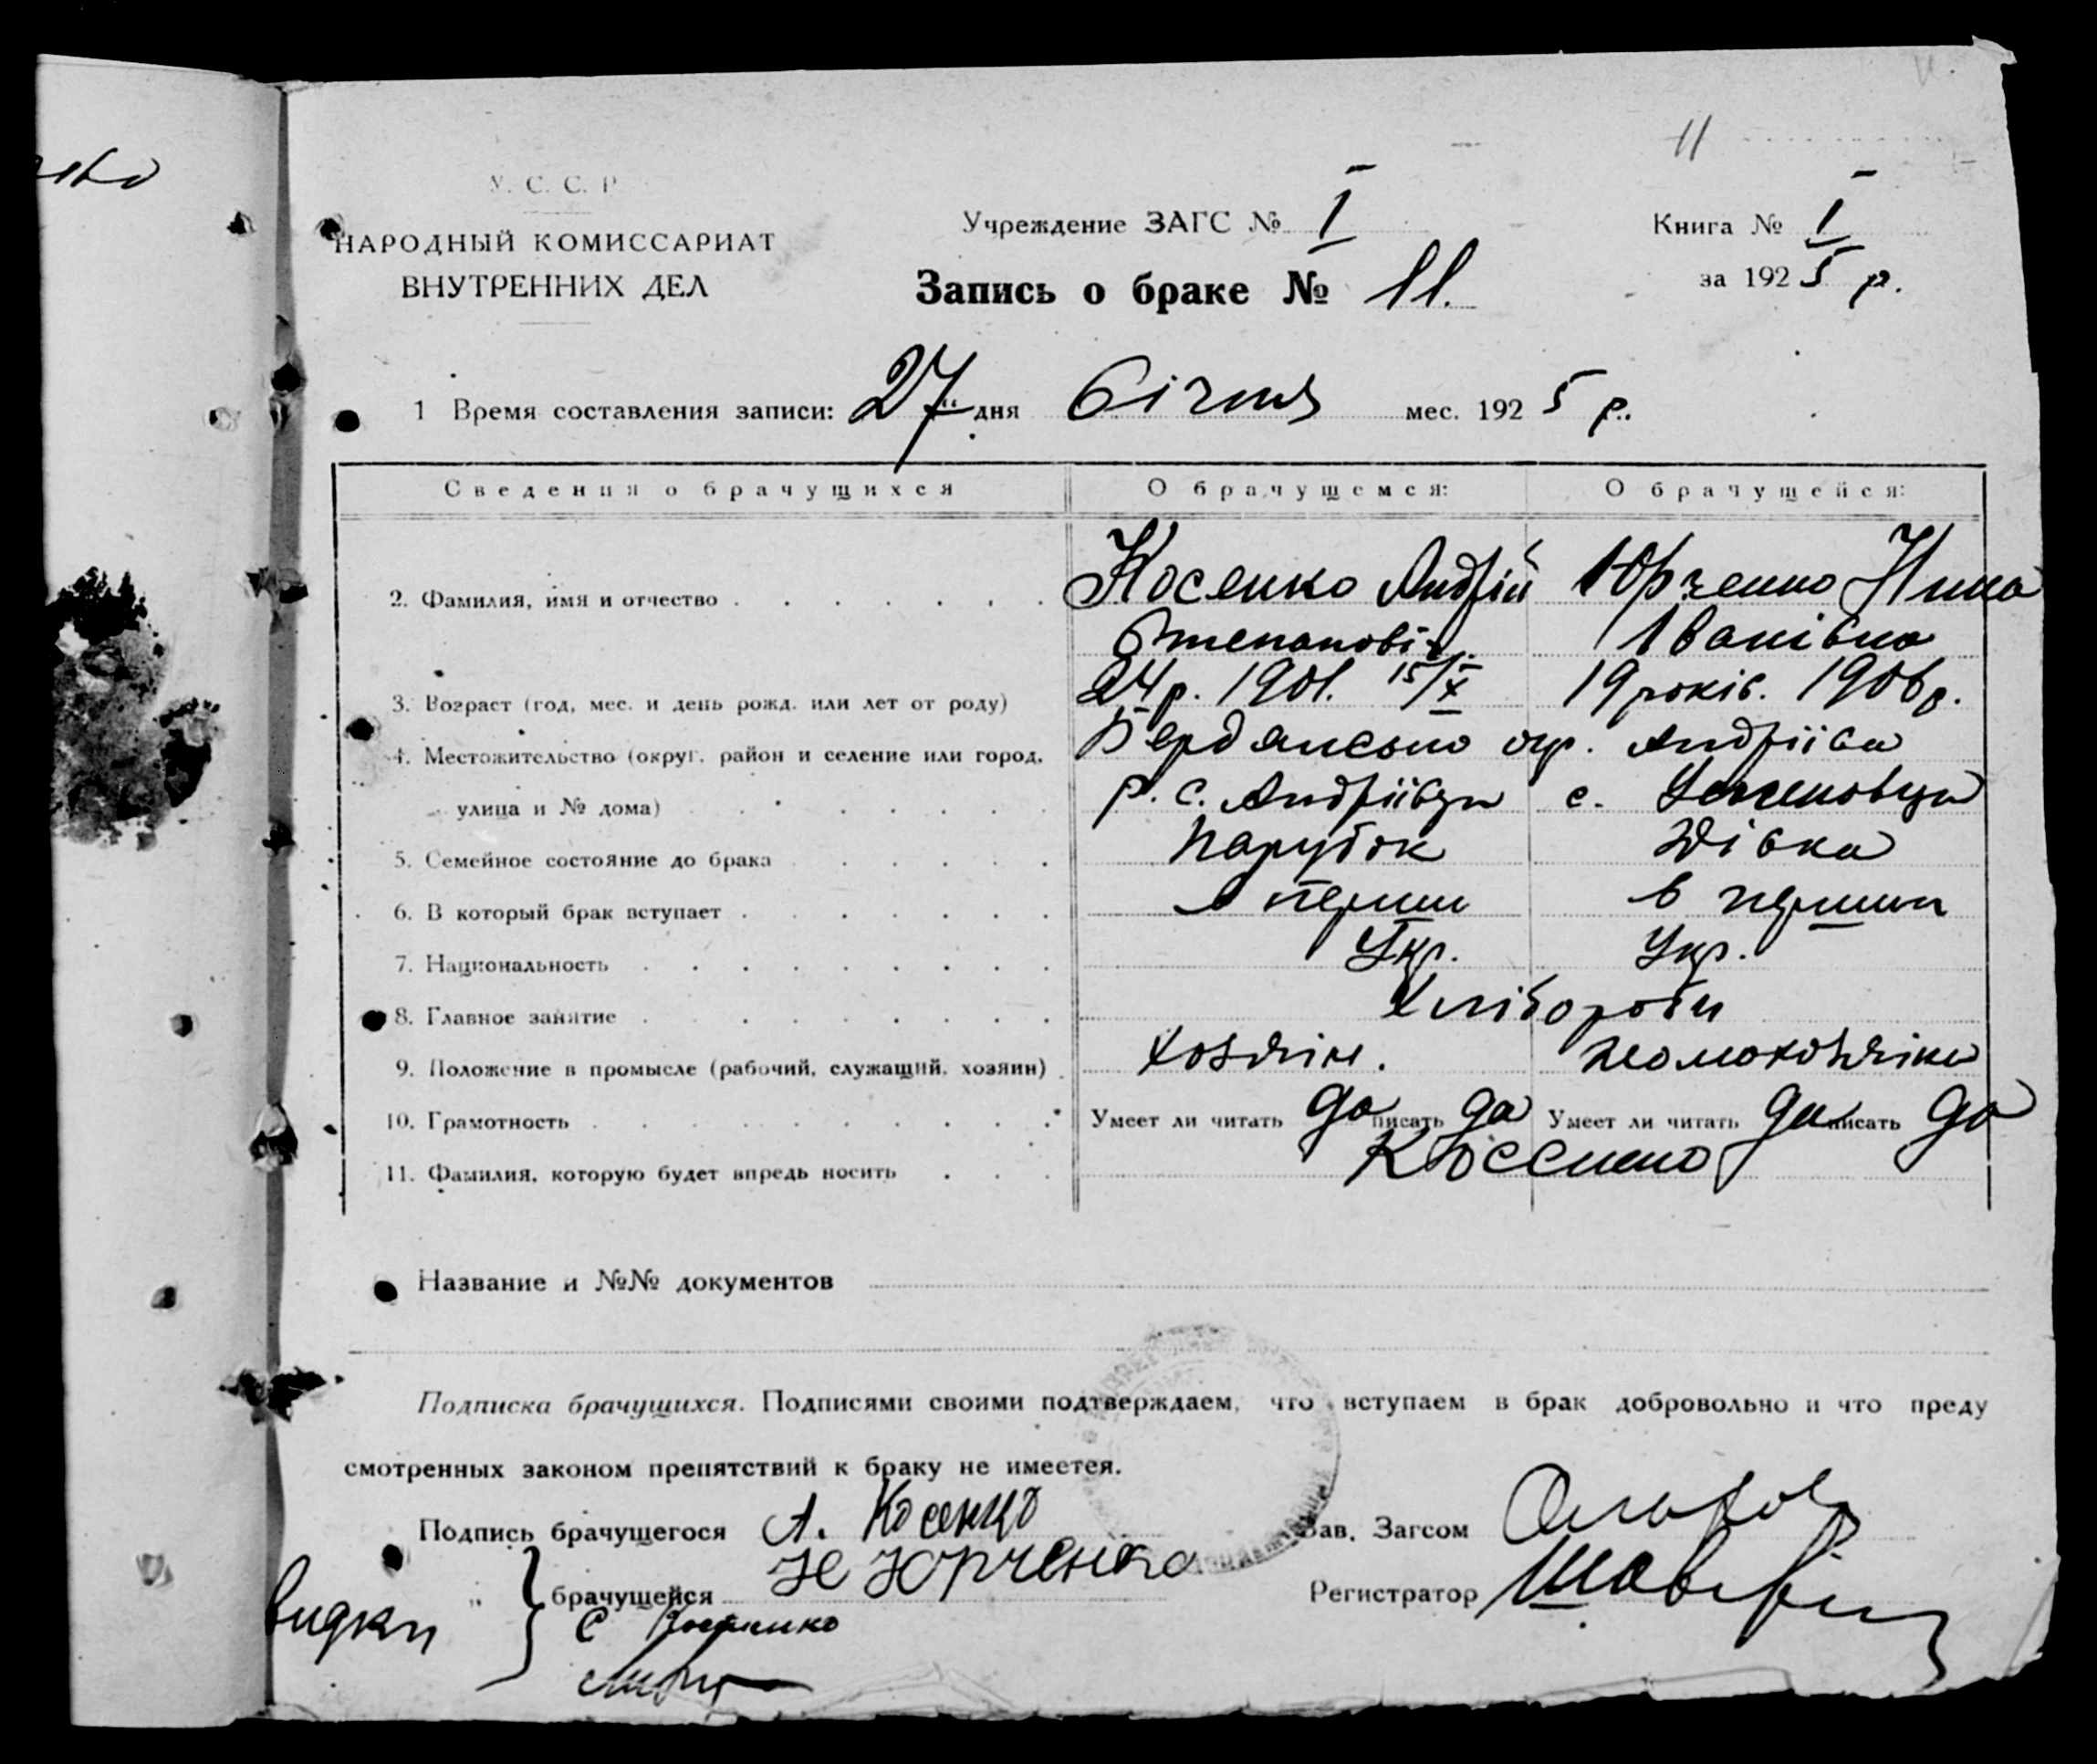 11
У. С. С. Р
НАРОДНЫЙ КОМИССАРИАТ
ВНУТРЕННИХ ДЕЛ
Учреждение ЗАГС № I
Книга № I
за 1925 р.
Запись о браке № 11.
1 Время составления записи: 27 " дня Січня мес. 1925 р.
Сведения о брачущихся О брачущемся: О брачущейся:
2. Фамилия, имя и отчество Косенко Андрій Юрченко Нина
Степанович Іванівна
3. Возраст (год, мес. и день рожд. или лет от роду) 24 р. 1901. 15/X 19 років. 1906 р.
4. Местожительство (округ, район и селение или город, Бердянсько окр. Андріївн
улица и № дома) р. с. Андріївци с.
5. Семейное состояние до брака Парубок Дівка
6. В который брак вступает в перши в перший
7. Национальность Укр. Укр.
8. Главное занятие Хлібороби
9. Положение в промысле (рабочий, служащий, хозяин) хозяїн. домохозяїка
10. Грамотность Умеет ли читать да писать да Умеет ли читать да писать да
11. Фамилия, которую будет впредь носить Косенко
Название и №№ документов
Подписка брачущихся. Подписями своими подтверждаем, что вступаем в брак добровольно и что преду
смотренных законом препятствий к браку не имеется.
Подпись брачущегося А. Косенко Зав. Загсом
" брачущейся Н Юрченко Регистратор